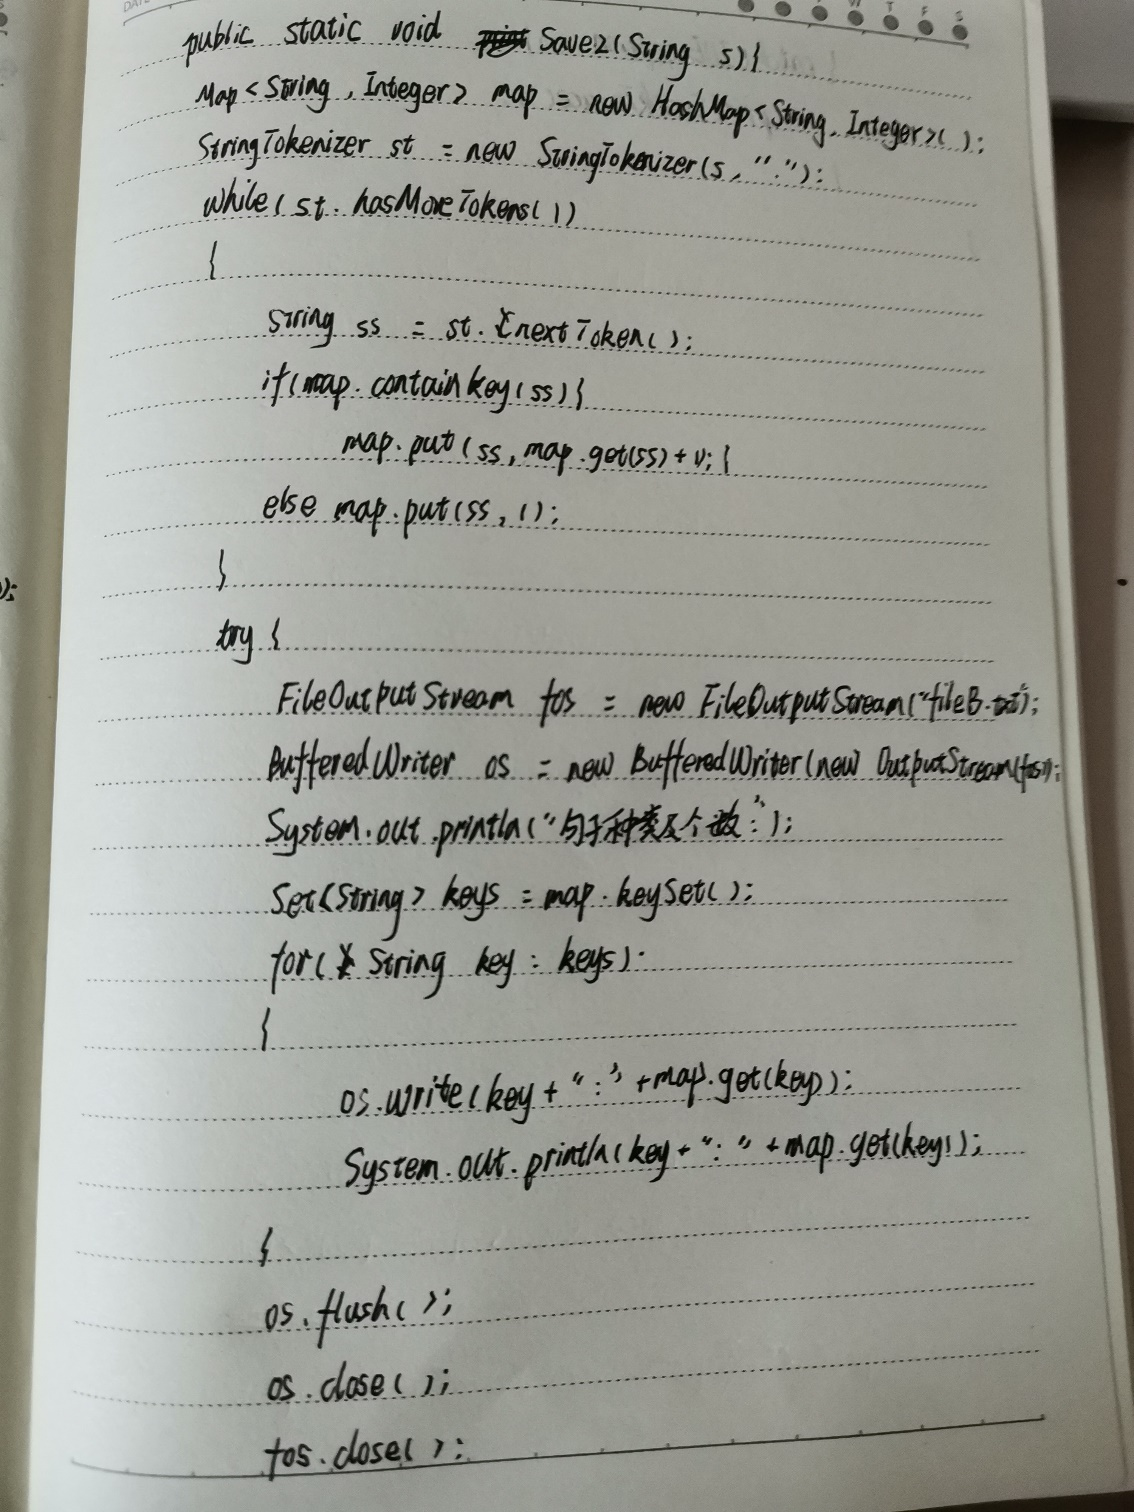 public static void Save2(String s){
Map<String, Integer> map = new HashMap<String, Integer>();
StringTokenizer st = new StringTokenizer(s, ".");
while(st.hasMoreTokens())
{
String ss = st.nextToken();
if(map.containkey(ss){
map.put(ss, map.get(ss)+1); }
else map.put(ss, 1);
}
try {
FileOutputStream fos = new FileOutputStream("fileB.txt");
BufferedWriter os = new BufferedWriter(new OutputStream(fos));
System.out.println("句子种类及个数:");
Set<String> keys = map.keySet();
for(String key : keys)
{
os.write(key+":"+map.get(key));
System.out.println(key+":"+map.get(key));
}
os.flush();
os.close();
fos.close();
);